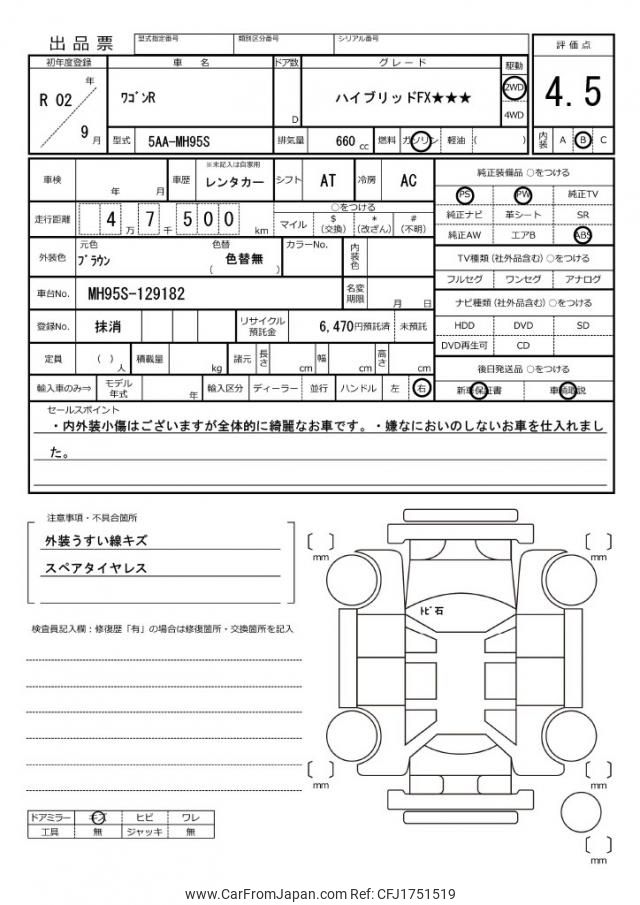 出品票
型式指定番号 類別区分番号 シリアル番号
初年度登録 車名 ドア数 グレード 駆動 評価点
R 02 年 9 月 ﾜｺﾞﾝR D ハイブリッドFX★★★ 2WD 4WD 4.5
型式 5AA-MH95S 排気量 660 cc 燃料 ガソリン 軽油 ( ) 内装 A B C
車検 年 月 車歴 ※未記入は自家用 レンタカー シフト AT 冷房 AC
走行距離 4 万 7 千 5 0 0 km ○をつける
マイル $ (交換) * (改ざん) # (不明)
外装色 元色 ﾌﾞﾗｳﾝ 色替 ( 色替無 ) カラーNo. 内装色
車台No. MH95S-129182 名変期限 月 日
登録No. 抹消 リサイクル預託金 6,470円預託済 未預託
定員 ( ) 人 積載量 kg 諸元 長さ cm 幅 cm 高さ cm
輸入車のみ⇒ モデル年式 年 輸入区分 ディーラー 並行 ハンドル 左 右
純正装備品 ○をつける
PS PW 純正TV
純正ナビ 革シート SR
純正AW エアB ABS
TV種類 (社外品含む) ○をつける
フルセグ ワンセグ アナログ
ナビ種類 (社外品含む)○をつける
HDD DVD SD
DVD再生可 CD
後日発送品 ○をつける
新車保証書 車輌取説
セールスポイント
・内外装小傷はございますが全体的に綺麗なお車です。・嫌なにおいのしないお車を仕入れまし
た。
注意事項・不具合箇所
外装うすい線キズ
スペアタイヤレス
検査員記入欄：修復歴「有」の場合は修復箇所・交換箇所を記入
ﾄﾋﾞ石
mm
mm
mm
mm
mm
ドアミラー キズ ヒビ ワレ
工具 無 ジャッキ 無
www.CarFromJapan.com Ref: CFJ1751519